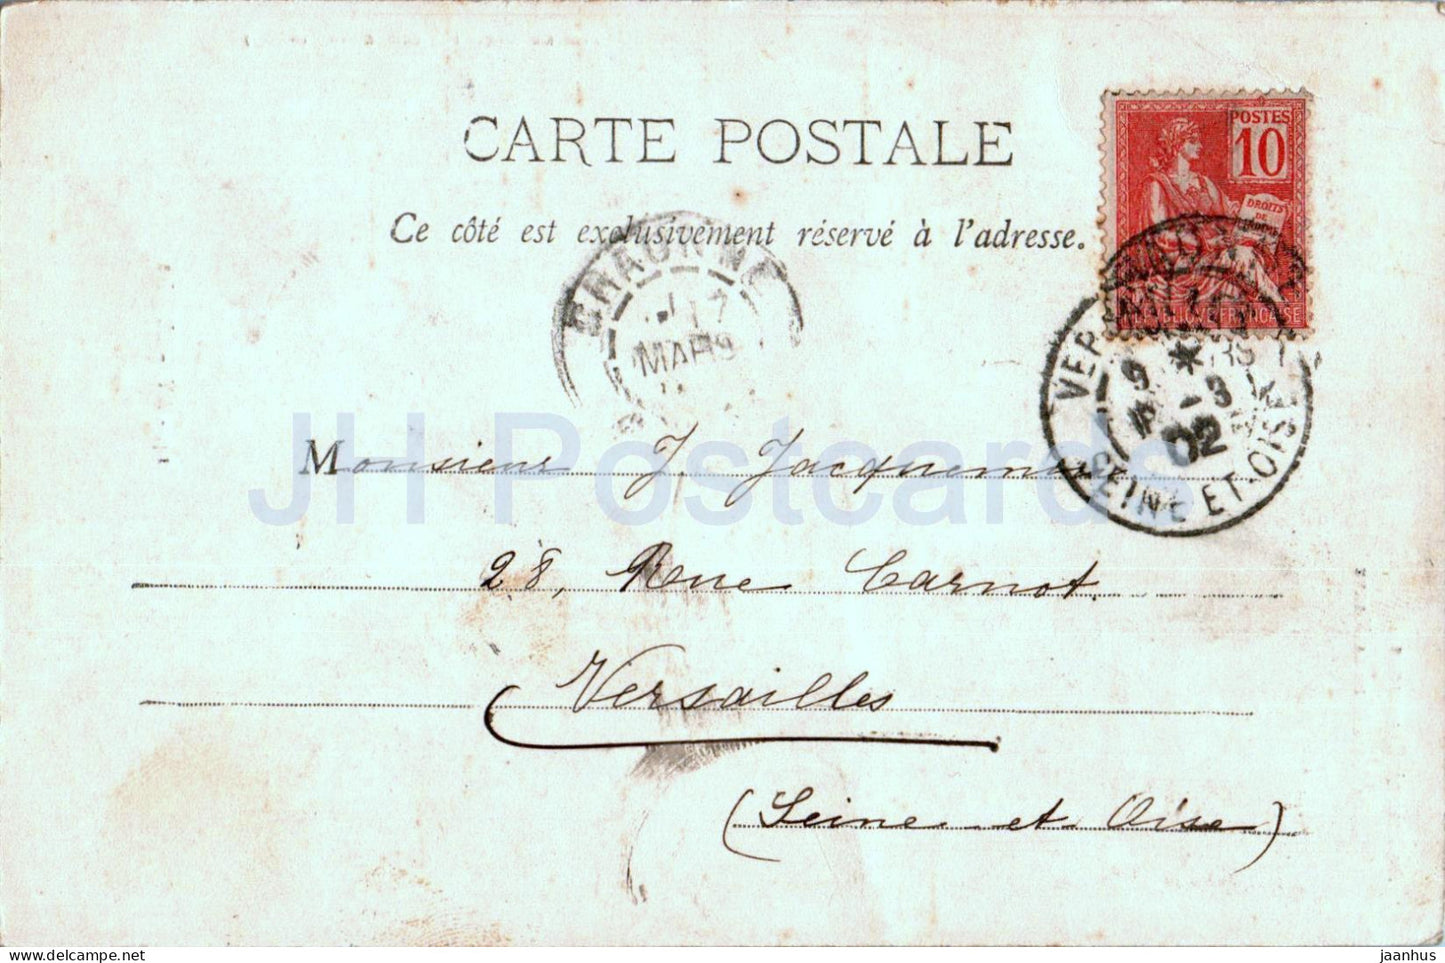 CARTE POSTALE
Ce côté est exclusivement réservé à l'adresse.
POSTES
10
DROITS
DE
REPUBLIQUE FRANÇAISE
17
MARS
9 * -3
02
SEINE ET-OISE
JH Postcards
Monsieur J. Jacquemin
28, Rue Carnot.
Versailles
(Seine et Oise)
jaanhus